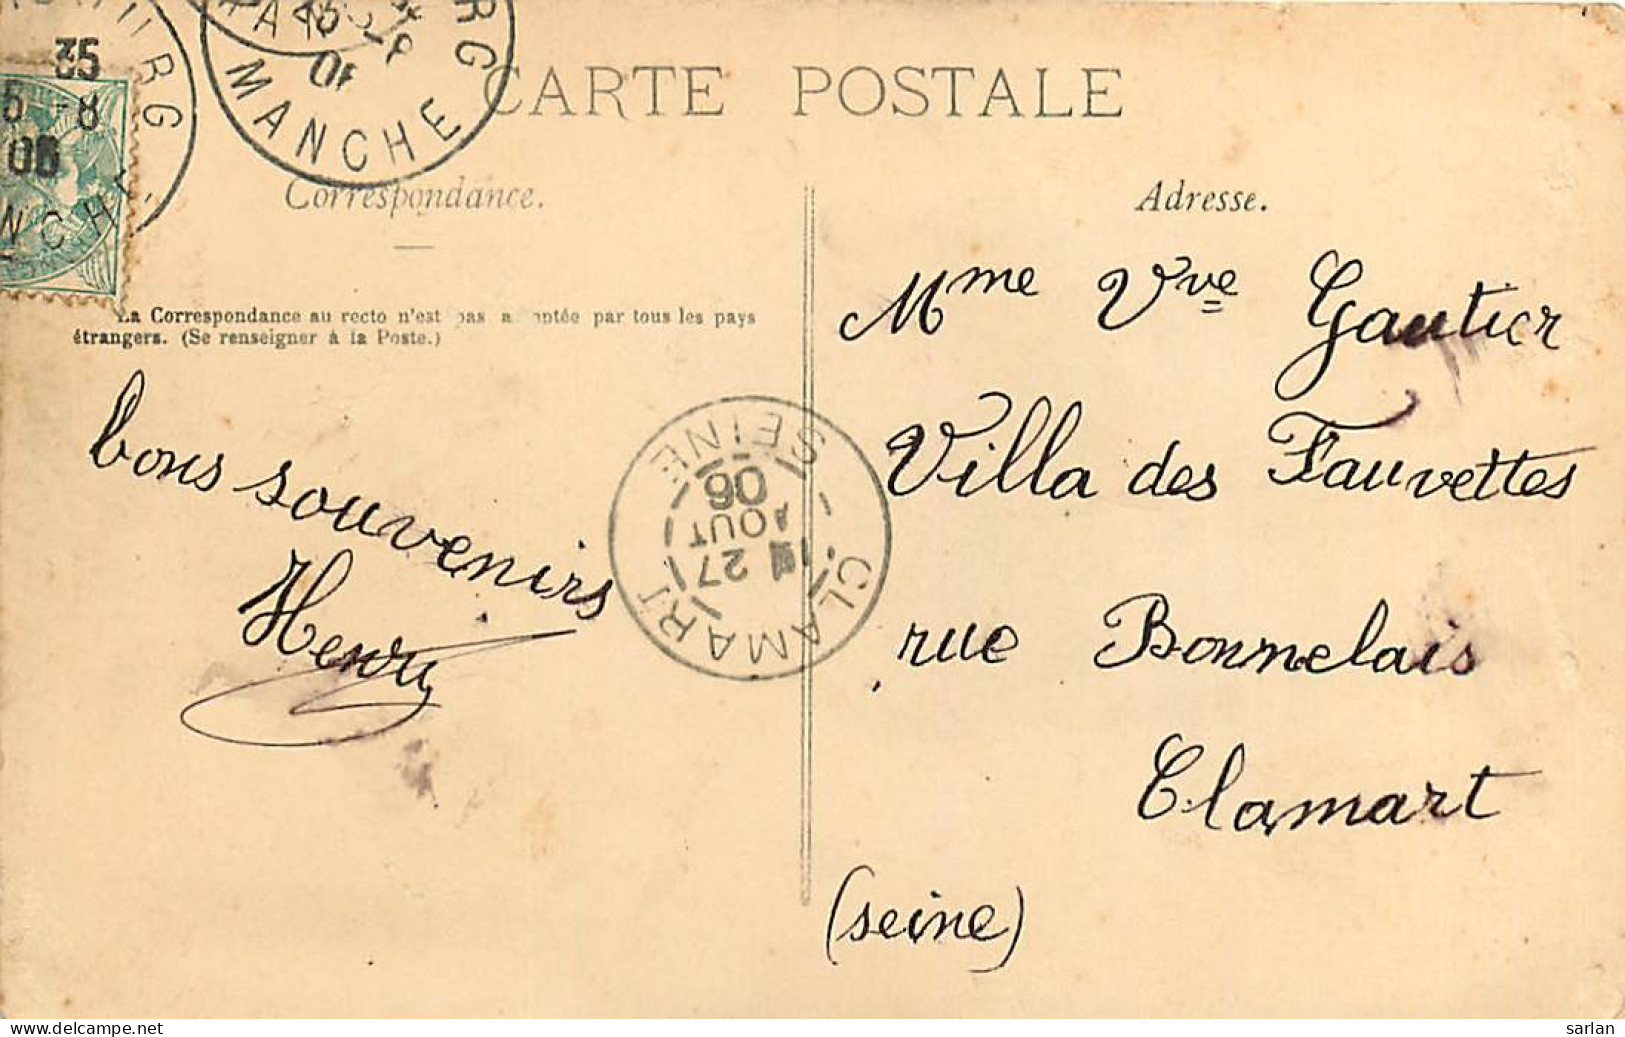 35
5 -8
06
MANCHE
CARTE POSTALE
Correspondance.
Adresse.
La Correspondance au recto n'est pas acceptée par tous les pays
étrangers. (Se renseigner à la Poste.)
bons souvenirs
Henry
CLAMART
27
AOUT
06
SEINE
Mme Vve Gautier
Villa des Fauvettes
rue Bonnelais
Clamart
(seine)
delcampe.net
sarlan